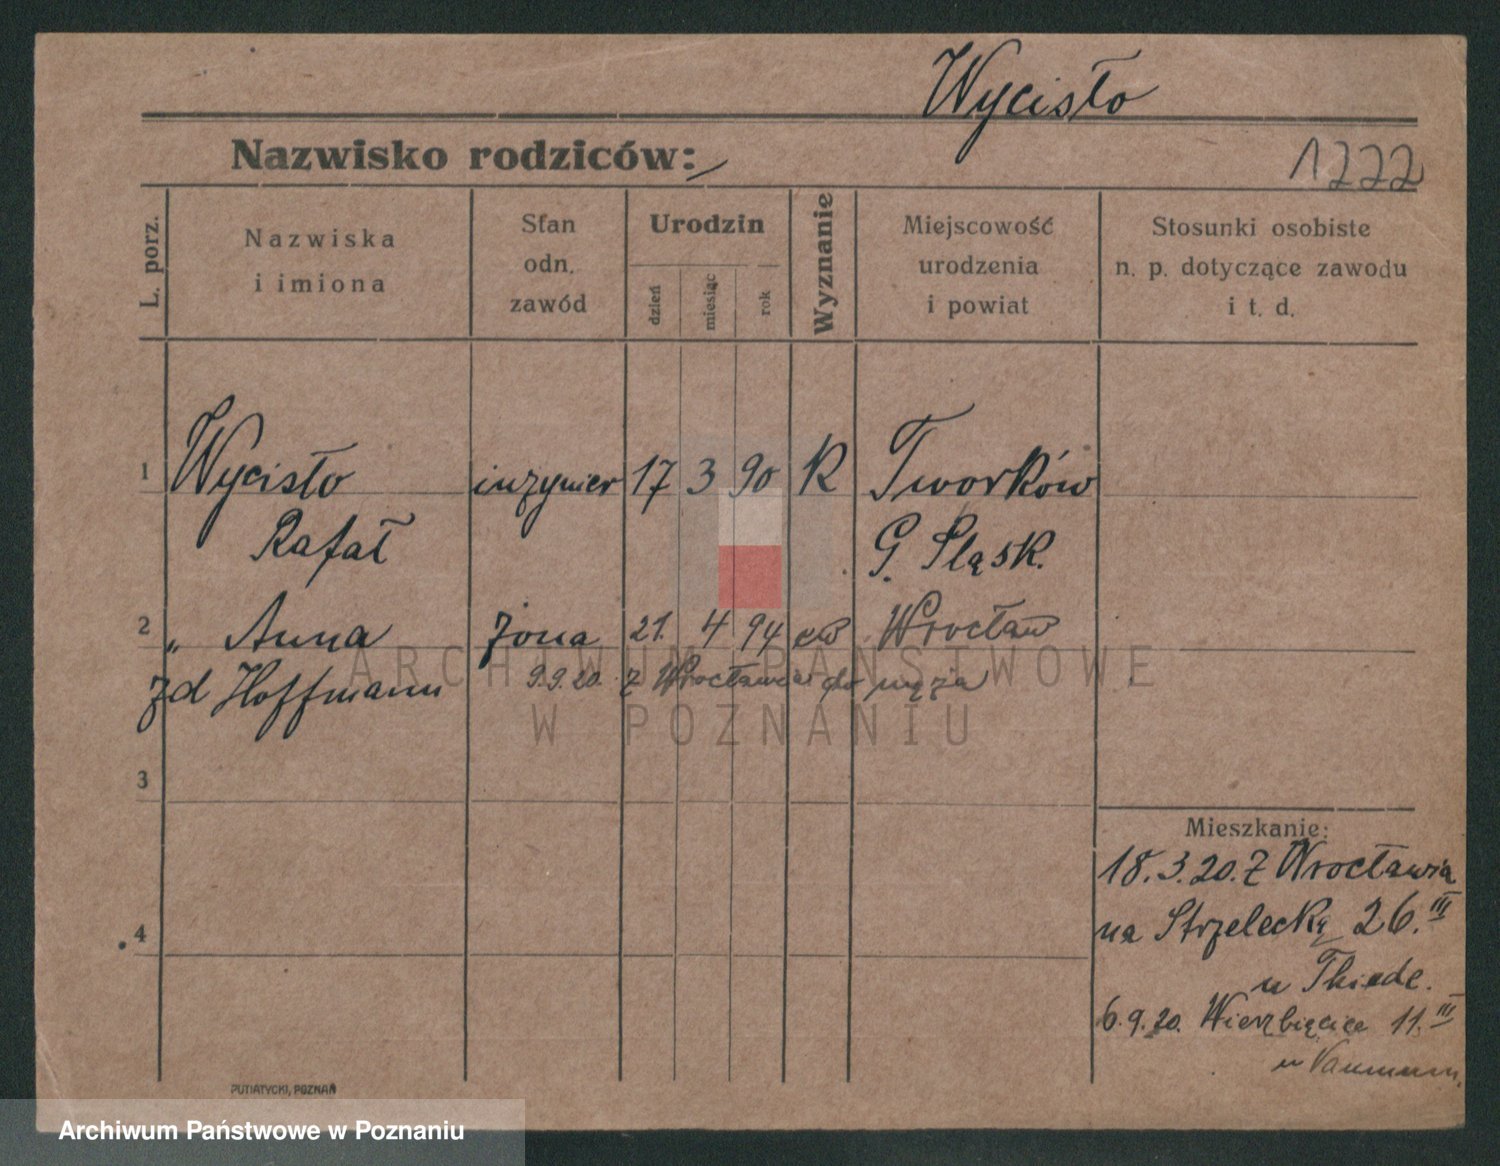 Wycisło
Nazwisko rodziców:
1222
L. porz.
Nazwiska
i imiona
Stan
odn.
zawód
Urodzin
dzień
miesiąc
rok
Wyznanie
Miejscowość
urodzenia
i powiat
Stosunki osobiste
n. p. dotyczące zawodu
i t. d.
1 Wycisło inżynier 17 3 90 K Tworków
Rafał G. Śląsk.
2 " Anna żona 21. 4 94 ew Wrocław
zd Hoffmann 9.9.20. z Wrocławia do męża
3
4
Mieszkanie:
18.3.20. z Wrocławia
na Strzelecką 26. III
u Thiede.
6.9.20. Wierzbięcice 11. III
u Naumann.
PUTIATYCKI, POZNAŃ
ARCHIWUM PAŃSTWOWE
W POZNANIU
Archiwum Państwowe w Poznaniu